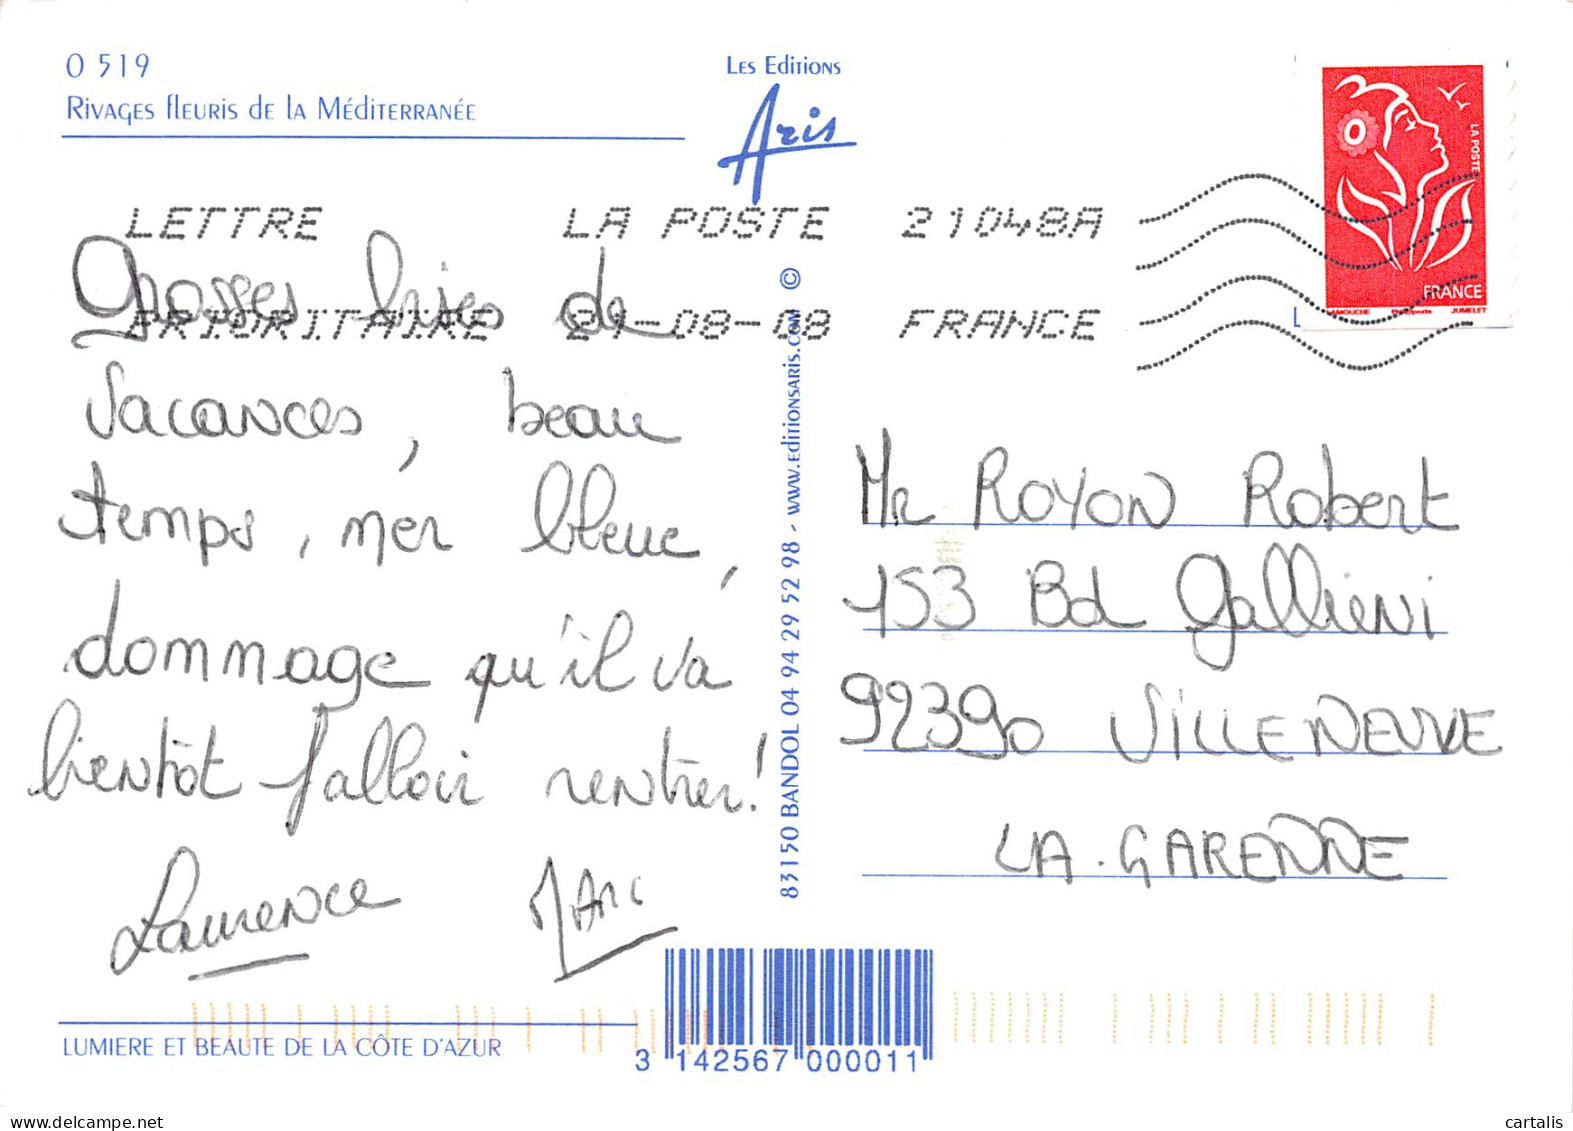 O 519
Rivages fleuris de la Méditerranée
Les Editions
Aris
LA POSTE
FRANCE
LAMOUCHE
JUMELET
LETTRE LA POSTE 21048A
PRIORITAIRE 21-08-08 FRANCE
Grosses bises de
vacances, beau
temps, mer bleue,
dommage qu'il va
bientôt falloir rentrer!
Laurence Marc
83150 BANDOL 04 94 29 52 98 - www.editionsaris.com ©
Mr ROYON Robert
153 Bd Gallieni
92390 VILLENEUVE
LA.GARENNE
LUMIERE ET BEAUTE DE LA CÔTE D'AZUR
3 142567 000011
cartalis
www.delcampe.net